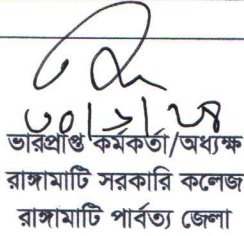 ভারপ্রাপ্ত কর্মকর্তা/অধ্যক্ষ
রাঙ্গামাটি সরকারি কলেজ
রাঙ্গামাটি পার্বত্য জেলা